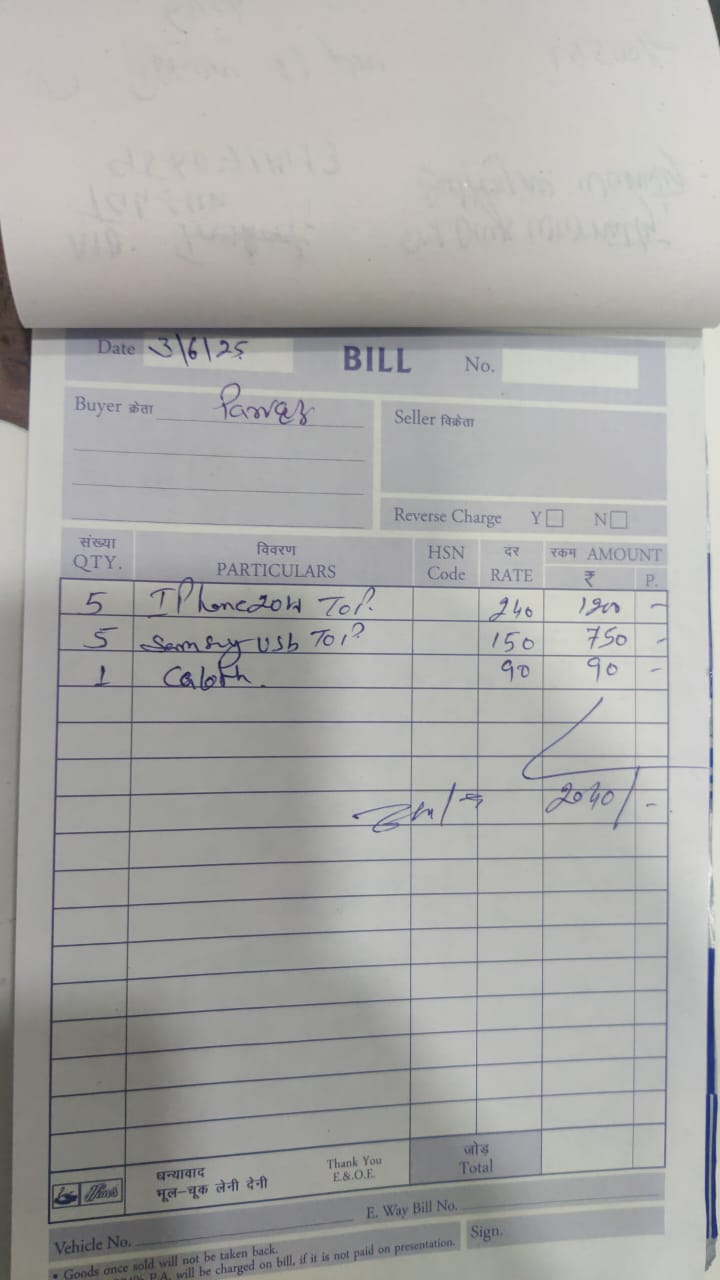 Date 3/6/25 BILL No.
Buyer क्रेता
Seller विक्रेता
Reverse Charge Y N
संख्या QTY. विवरण PARTICULARS HSN Code दर RATE रकम AMOUNT ₹ P.
5 IPhone 20W TOP. 240 1200 -
5 USb TOP 150 750 -
1 90 90 -
2040/-
धन्यवाद
भूल-चूक लेनी देनी
Thank You
E.&O.E.
जोड़
Total
E. Way Bill No.
Vehicle No.
Sign.
• Goods once sold will not be taken back.
P.A. will be charged on bill, if it is not paid on presentation.